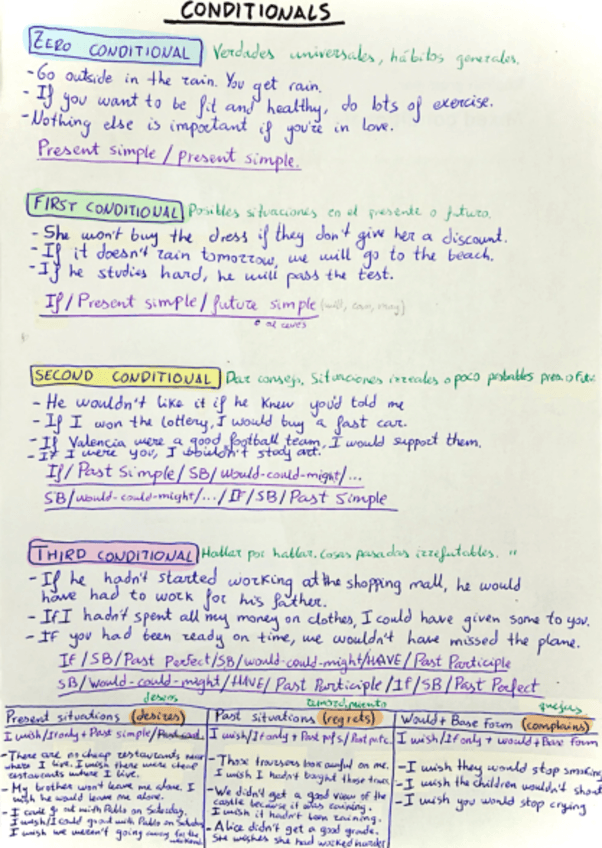 CONDITIONALS
ZERO CONDITIONAL Verdades universales, hábitos generales.
- Go outside in the rain. You get rain.
- If you want to be fit and healthy, do lots of exercise.
- Nothing else is important if you're in love.
Present simple / present simple.
FIRST CONDITIONAL Posibles situaciones en el presente o futuro.
- She won't buy the dress if they don't give her a discount.
- If it doesn't rain tomorrow, we will go to the beach.
- If he studies hard, he will pass the test.
If / Present simple / future simple (will, can, may)
o al revés
SECOND CONDITIONAL Dar consejo, Situaciones irreales o poco probables pres. o Futu
- He wouldn't like it if he knew you'd told me
- If I won the lottery, I would buy a fast car.
- If Valencia were a good football team, I would support them.
- If I were you, I wouldn't study art.
If / Past Simple / SB / would-could-might / ...
SB / would-could-might / ... / IF / SB / Past Simple
THIRD CONDITIONAL Hablar por hablar. cosas pasadas irrefutables. "
- If he hadn't started working at the shopping mall, he would
have had to work for his father.
- If I hadn't spent all my money on clothes, I could have given some to you.
- IF you had been ready on time, we wouldn't have missed the plane.
If / SB / Past Perfect / SB / would-could-might / HAVE / Past Participle
SB / would-could-might / HAVE / Past Participle / If / SB / Past Perfect
deseos
Present situations (desires)
I wish / If only + Past simple /
- There are no cheap restaurants near
where I live. I wish there were cheap
restaurants where I live.
- My brother won't leave me alone. I
wish he would leave me alone.
- I can't go out with Pablo on Saturday.
I wish / I could go out with Pablo on Saturday
I wish we weren't going away for the
weekend
remordimiento
Past situations (regrets)
I wish / If only + Past pfs / Past pfc.
- Those trousers look awful on me.
I wish I hadn't bought those trous
- We didn't get a good view of the
castle because it was raining.
I wish it hadn't been raining.
- Alice didn't get a good grade.
She wishes she had worked harder
quejas
Would + Base Form (complains)
I wish / If only + would + Base Form
- I wish they would stop smoking
- I wish the children wouldn't shout
- I wish you would stop crying